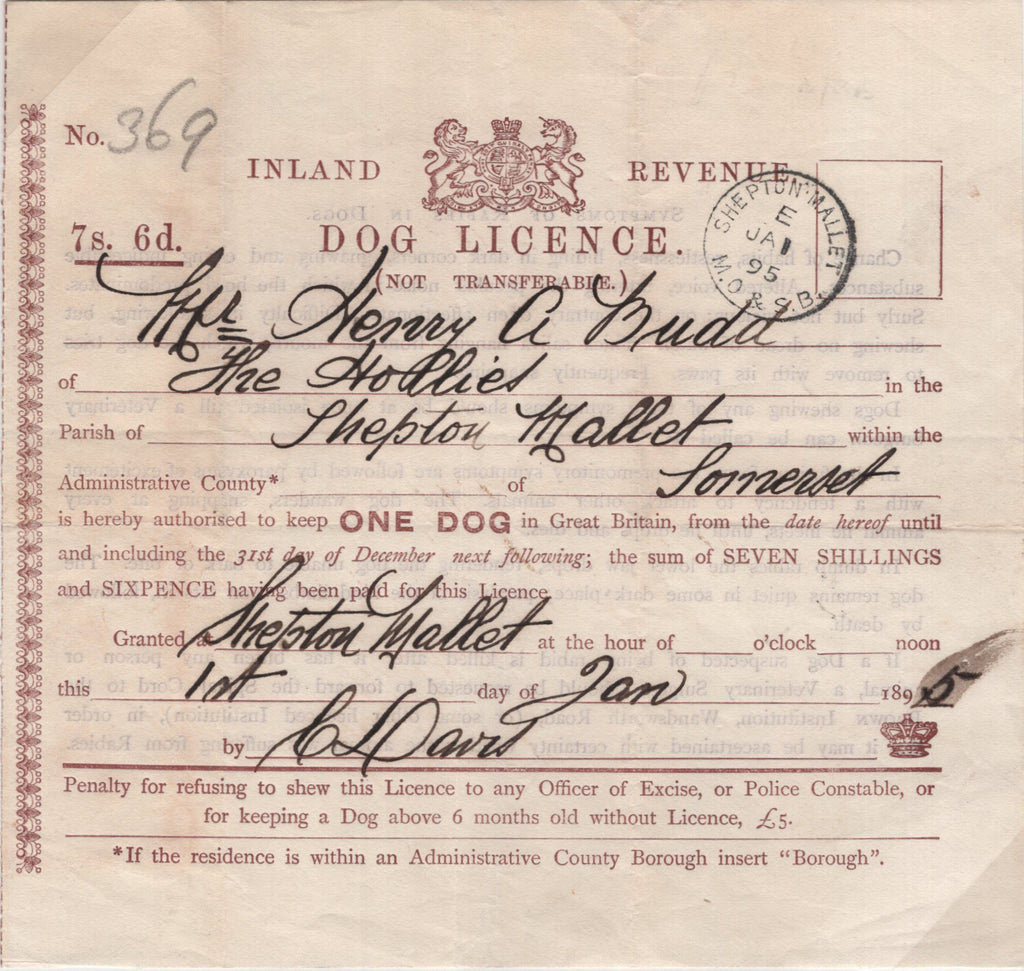 No. 369
INLAND REVENUE
SHEPTON·MALLET
E
JA 1
95
M.O.& S.B.
7s. 6d.
DOG LICENCE.
(NOT TRANSFERABLE.)
Mr= Henry A Budd
of The Hollies in the
Parish of Shepton Mallet within the
Administrative County* of Somerset
is hereby authorised to keep ONE DOG in Great Britain, from the date hereof until
and including the 31st day of December next following; the sum of SEVEN SHILLINGS
and SIXPENCE having been paid for this Licence
Granted at Shepton Mallet at the hour of o'clock noon
this 1st day of Jan 1895
by C Davis
Penalty for refusing to shew this Licence to any Officer of Excise, or Police Constable, or
for keeping a Dog above 6 months old without Licence, £5.
*If the residence is within an Administrative County Borough insert "Borough".